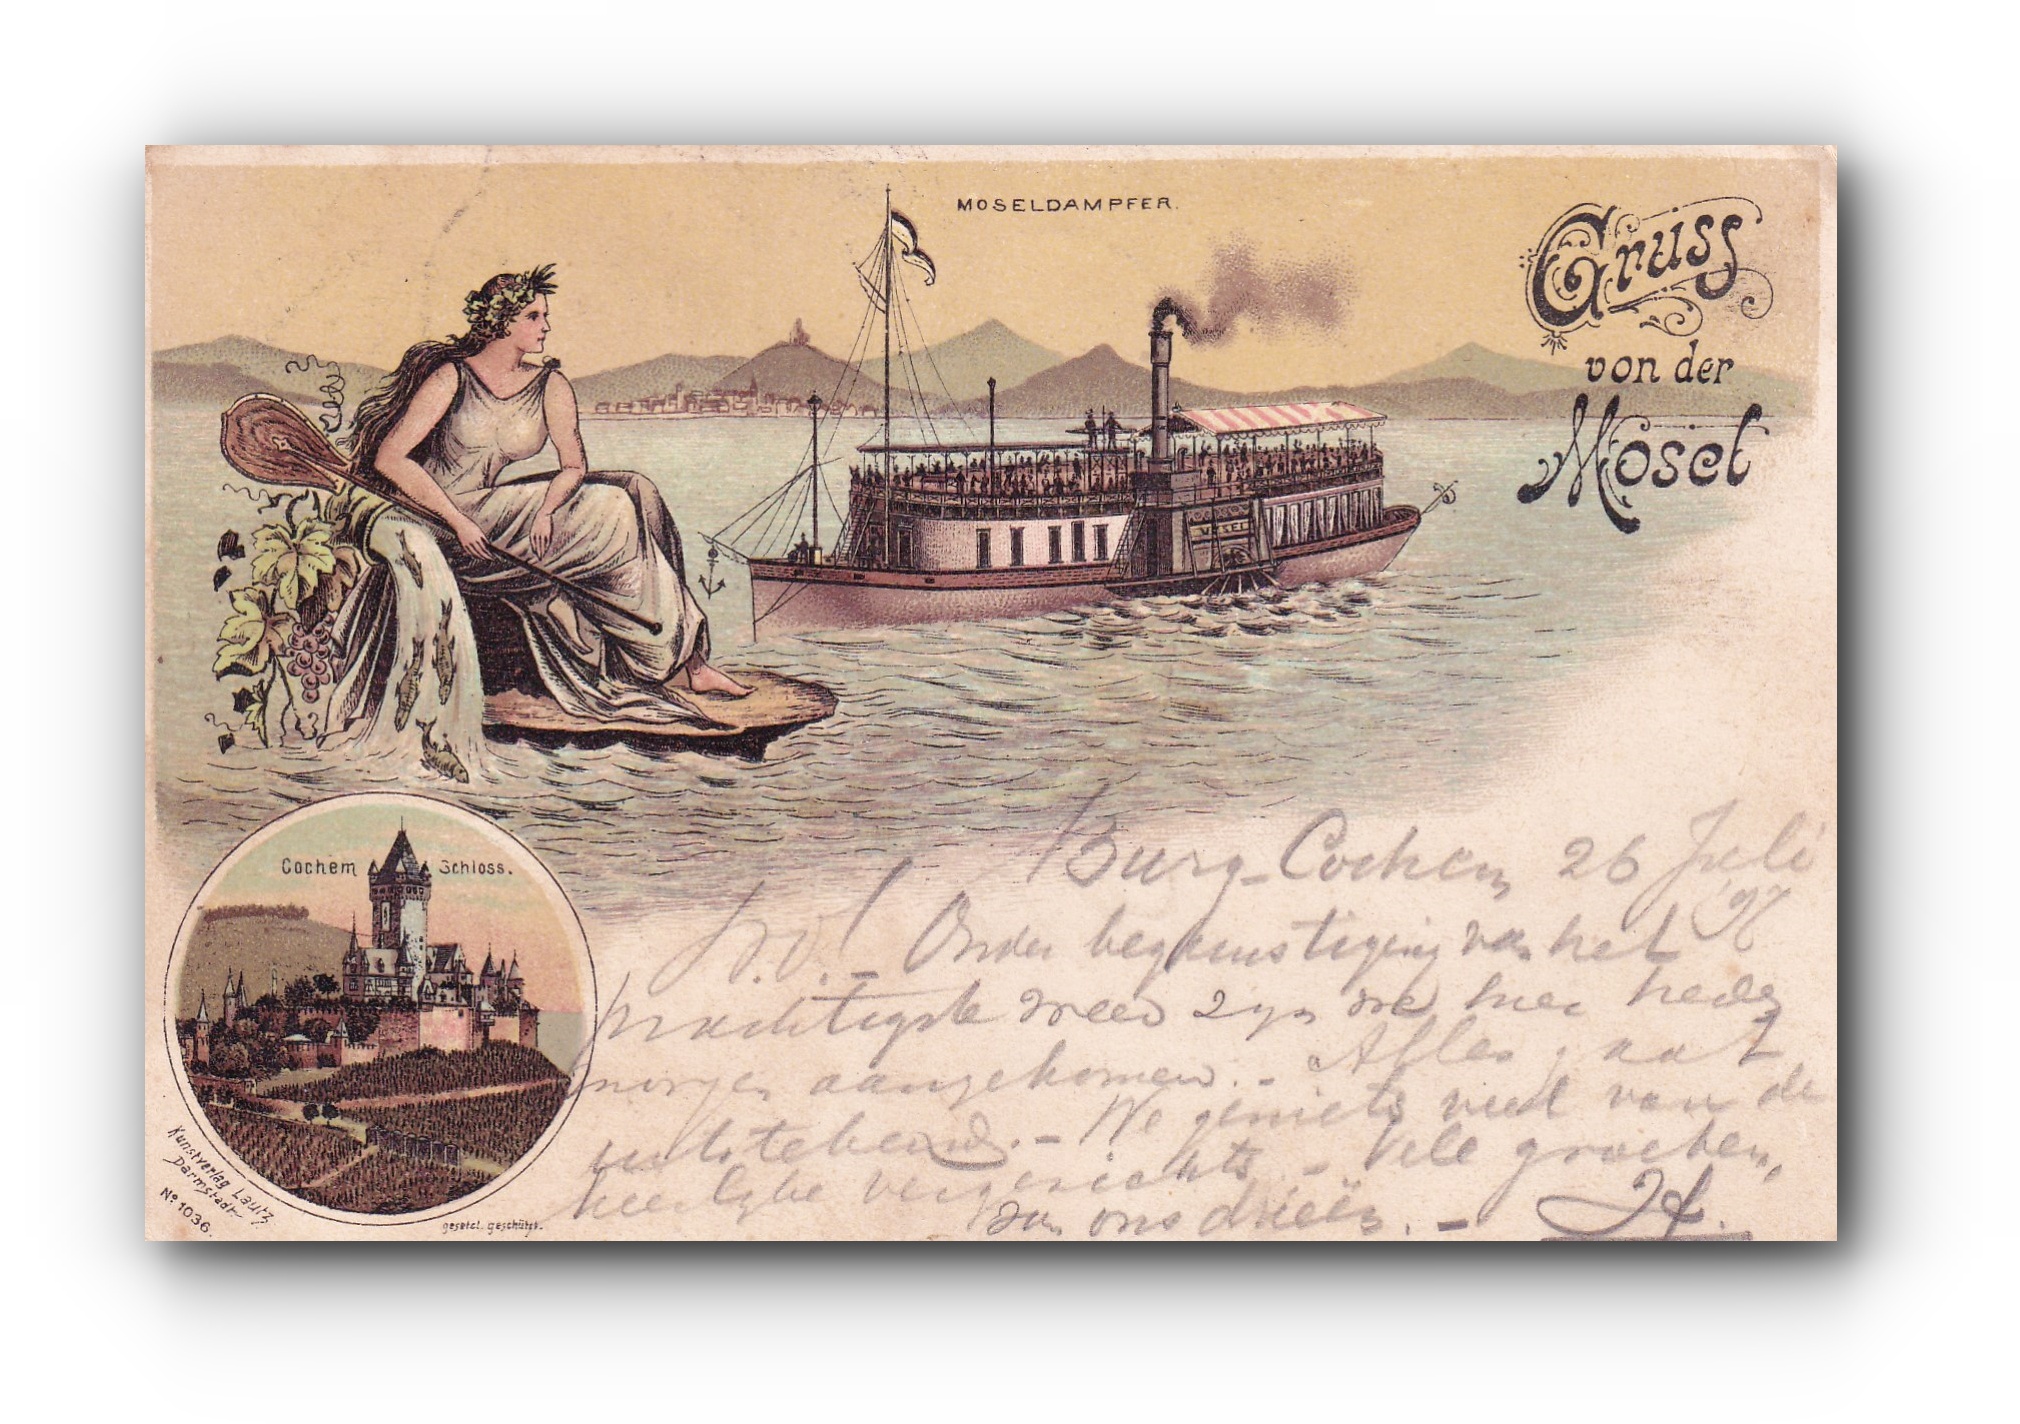 MOSELDAMPFER.
Gruss
von der
Mosel
Cochem Schloss.
Kunstverlag Lautz
Darmstadt
No 1036.
gesetzl. geschützt.
Burg-Cochem 26 Juli
'97
Onder begunstiging van het
prachtigste weer zijn we hier heden
morgen aangekomen. - Alles gaat
uitstekend. - We geniets veel van de
heerlijke vergezichts - Vele groeten,
van ons drieën. -